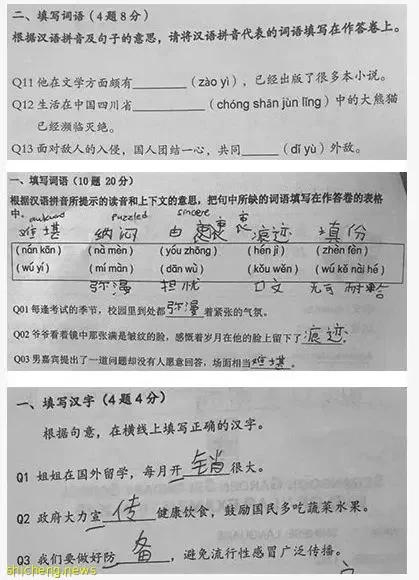 二、填写词语（4题8分）
根据汉语拼音及句子的意思，请将汉语拼音代表的词语填写在作答卷上。
Q11 他在文学方面颇有________（zào yì），已经出版了很多本小说。
Q12 生活在中国四川省________（chóng shān jùn lǐng）中的大熊猫
已经濒临灭绝。
Q13 面对敌人的入侵，国人团结一心，共同______（dǐ yù）外敌。
一、填写词语（10题 20分）
根据汉语拼音所提示的读音和上下文的意思，把句中所缺的词语填写在作答卷的表格
中。 awkward puzzled sincere
难堪 纳闷 由衷 痕迹
( nán kān ) ( nà mèn ) ( yóu zhōng ) ( hén jì ) ( zhèn fèn )
( wú yí ) ( mí màn ) ( dān wù ) ( kǒu wěn ) ( wú kě nài hé )
弥漫 担忧 口文
Q01 每逢考试的季节，校园里到处都 弥漫 着紧张的气氛。
Q02 爷爷看着镜中那张满是皱纹的脸，感慨着岁月在他的脸上留下了 痕迹
Q03 男嘉宾提出了一道问题却没有人愿意回答，场面相当 难堪 。
一、填写汉字（4题4分）
根据句意，在横线上填写正确的汉字。
Q1 姐姐在国外留学，每月开 销 很大。
Q2 政府大力宣 传 健康饮食，鼓励国民多吃蔬菜水果。
Q3 我们要做好防 备 ，避免流行性感冒广泛传播。
shicheng.news